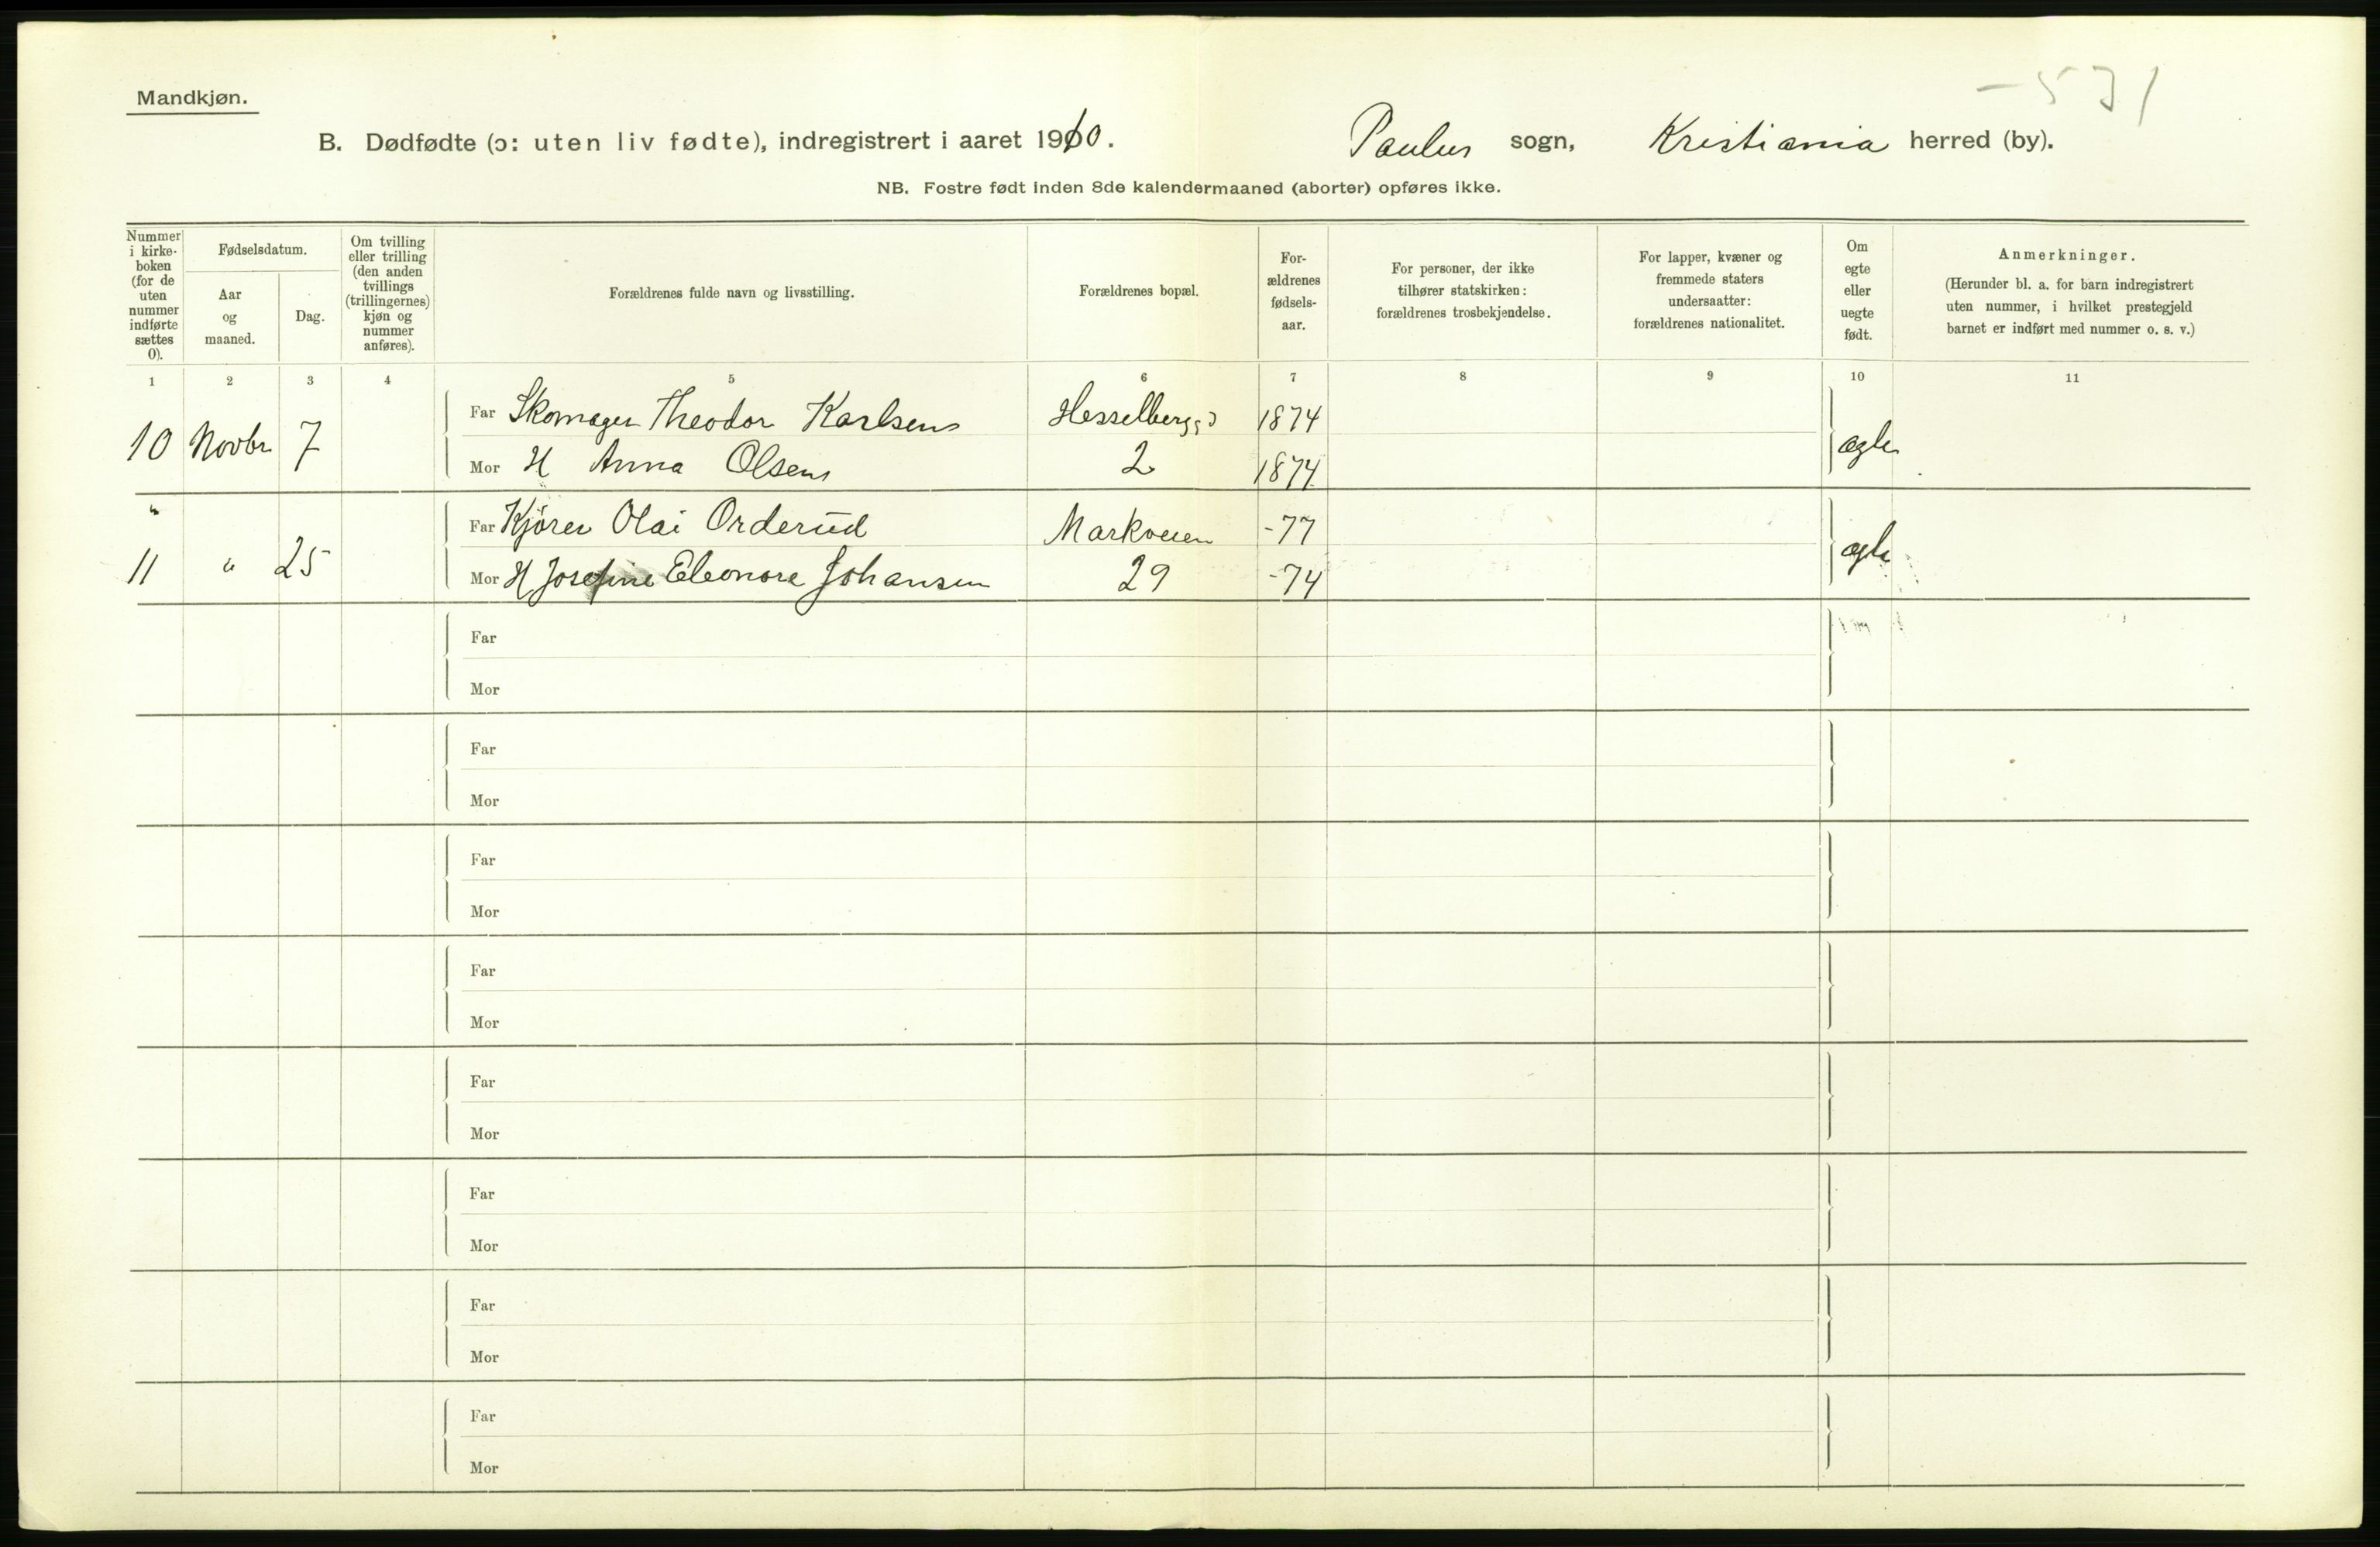 -531
Mandkjøn.
B. Dødfødte (ɔ: uten liv fødte), indregistrert i aaret 1910. Paulus sogn, Kristiania herred (by).
NB. Fostre født inden 8de kalendermaaned (aborter) opføres ikke.
Nummer i kirke-boken (for de uten nummer indførte sættes 0).
Fødselsdatum.
Aar og maaned.
Dag.
Om tvilling eller trilling (den anden tvillings (trillingernes) kjøn og nummer anføres).
Forældrenes fulde navn og livsstilling.
Forældrenes bopæl.
For-ældrenes fødsels-aar.
For personer, der ikke tilhører statskirken: forældrenes trosbekjendelse.
For lapper, kvæner og fremmede staters undersaatter: forældrenes nationalitet.
Om egte eller uegte født.
Anmerkninger.
(Herunder bl. a. for barn indregistrert uten nummer, i hvilket prestegjeld barnet er indført med nummer o. s. v.)
1 2 3 4 5 6 7 8 9 10 11
10 Novbr 7 Far Skomager Theodor Karlsen Hesselbergs 1874 ægte
Mor H Anna Olsen 2 1874
" Far Kjører Olai Orderud Markveien -77 ægte
11 " 25 Mor H Josefine Eleonore Johansen 29 -74
Far
Mor
Far
Mor
Far
Mor
Far
Mor
Far
Mor
Far
Mor
Far
Mor
Far
Mor